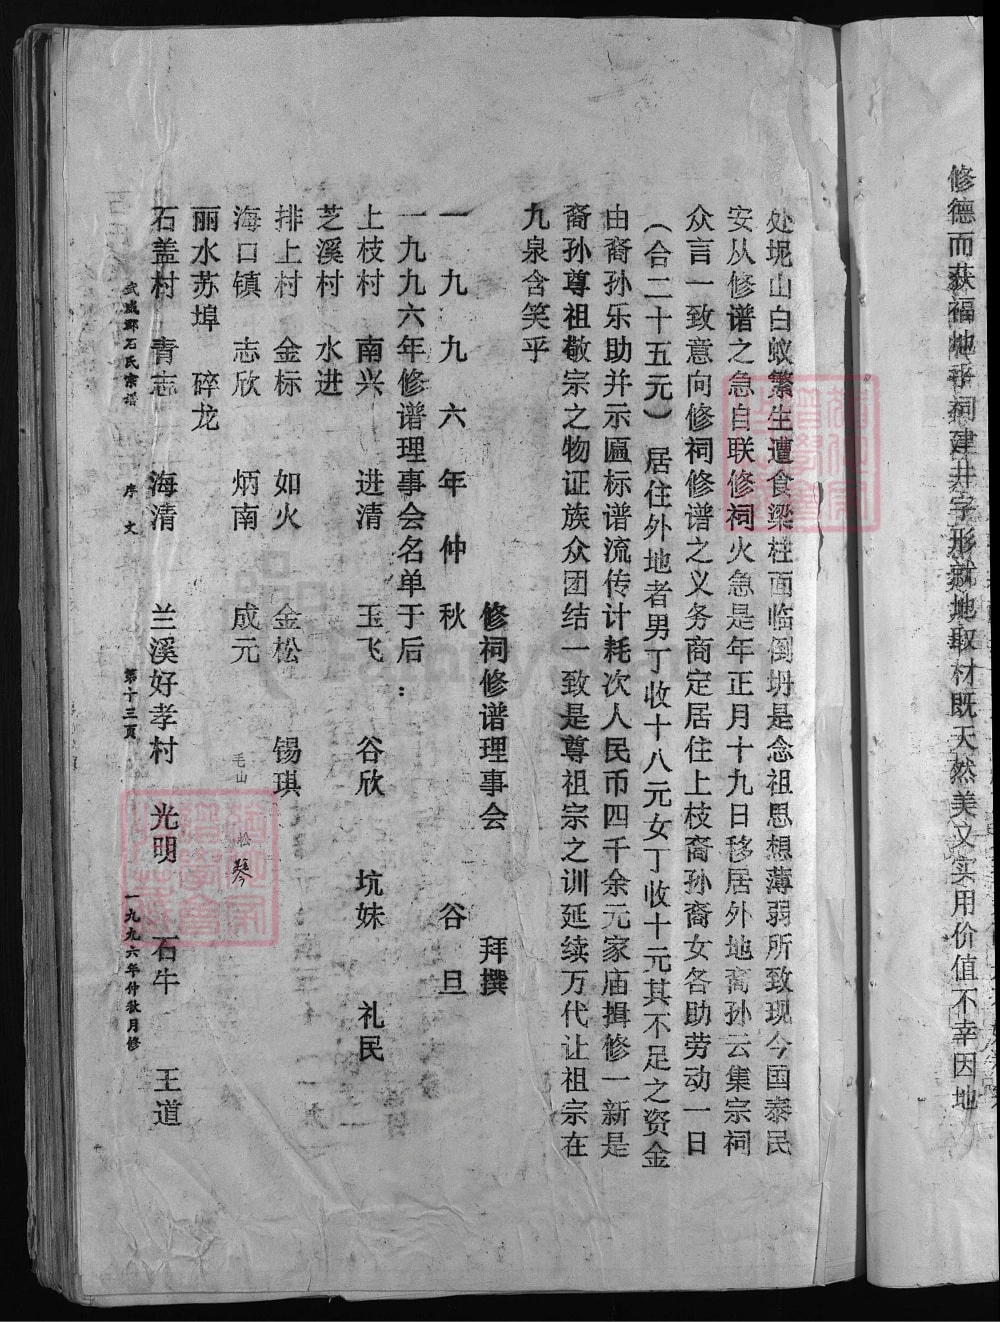 修德而获福地乎祠建井字形就地取材既天然美又实用价值不幸因地
处坭山白蚁繁生遭食梁柱面临倒坍是念祖思想薄弱所致现今国泰民
安从修谱之急自联修祠火急是年正月十九日移居外地裔孙云集宗祠
众言一致意向修祠修谱之义务商定居住上枝裔孙裔女各助劳动一日
(合二十五元)居住外地者男丁收十八元女丁收十元其不足之资金
由裔孙乐助并示匾标谱流传计耗次人民币四千余元家庙揖修一新是
裔孙尊祖敬宗之物证族众团结一致是尊祖宗之训延续万代让祖宗在
九泉含笑乎
修祠修谱理事会 拜撰
一九九六年仲秋 谷旦
一九九六年修谱理事会名单于后:
上枝村 南兴 进清 玉飞 谷欣 坑妹 礼民
芝溪村 水进
排上村 金标 如火 金松 锡琪
海口镇 志欣 炳南 成元 毛山 松琴
丽水苏埠 碎龙
石盖村 青志 海清 兰溪好孝村 光明 石牛 王道
武威郡石氏宗谱 序文 第十三页 一九九六年仲秋月修